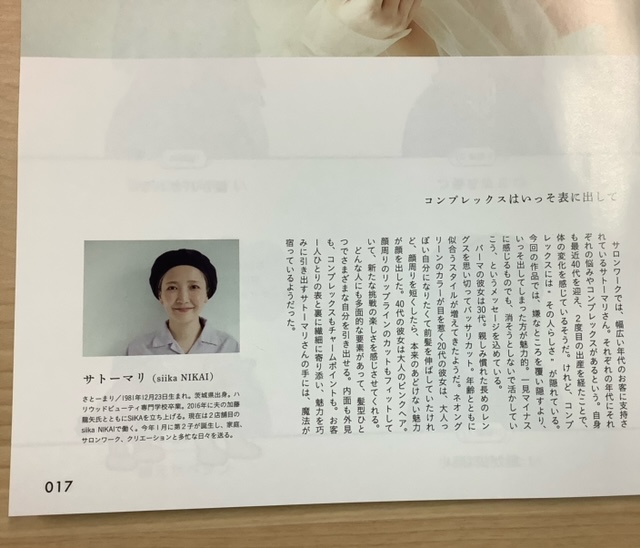 コンプレックスはいっそ表に出して
サロンワークでは、幅広い年代のお客に支持さ
れているサトーマリさん。それぞれの年代にそれ
ぞれの悩みやコンプレックスがあるという。自身
も最近40代を迎え、2度目の出産を経たことで、
体の変化を感じているそうだ。けれど、コンプ
レックスには“その人らしさ”が隠れている。
今回の作品では、嫌なところを覆い隠すより、
いっそ出してしまった方が魅力的。一見マイナス
に感じるものでも、消そうとしないで活かしてい
こう、というメッセージを込めている。
パーマの彼女は30代。親しみ慣れた長めのレン
グスを思い切ってバッサリカット。年齢とともに
似合うスタイルが増えてきたようだ。ネオング
リーンのカラーが目を惹く20代の彼女は、大人っ
ぽい自分になりたくて前髪を伸ばしていたけれ
ど、顔周りを短くしたら、本来のあどけない魅力
が顔を出した。40代の彼女は大人のピンクヘア。
顔周りのリップラインのカットもフィットして
いて、新たな挑戦の楽しさを感じさせてくれる。
どんな人にも多面的な要素があって、髪型ひと
つでさまざまな自分を引き出せる。内面も外見
も、コンプレックスもチャームポイントも。お客
一人ひとりの表と裏に繊細に寄り添い、魅力を巧
みに引き出すサトーマリさんの手には、魔法が
宿っているようだった。
サトーマリ（siika NIKAI）
さとーまり／1981年12月23日生まれ。茨城県出身。ハ
リウッドビューティ専門学校卒業。2016年に夫の加藤
龍矢氏とともにSIKAを立ち上げる。現在は2店舗目の
siika NIKAIで働く。今年1月に第2子が誕生し、家庭、
サロンワーク、クリエーションと多忙な日々を送る。
017